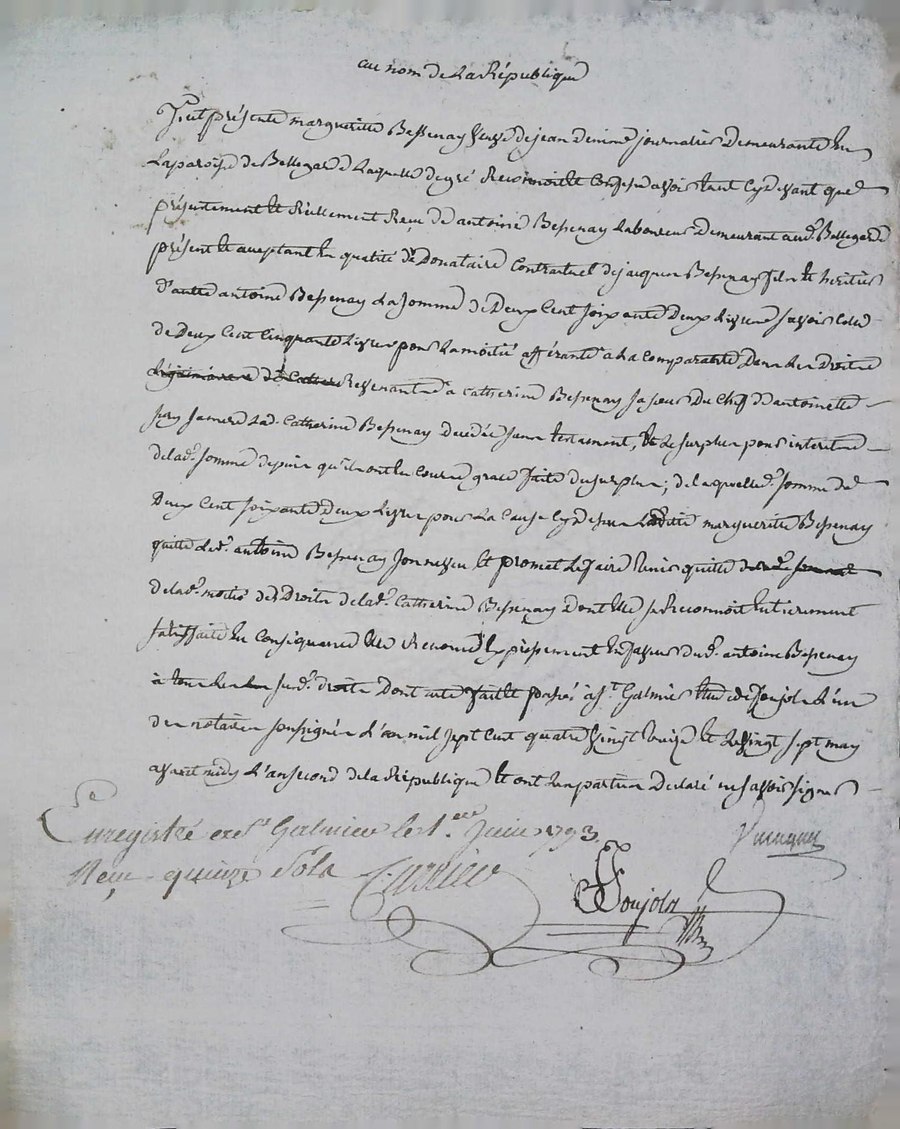 au nom de La République
Fut présente margueritte Bessenay veuve de jean demmé journalier Demeurante en
La paroisse de Bellegarde Laquelle de gré Reconnoit et Confesse avoir tant Cydevant que
présentement et Réellement Reçu de antoine Bessenay Laboureur Demeurant aud. Bellegarde
présent et acceptant en qualité de Donataire Contractuel de jacques Bessenay fils et heritier
d'autre antoine Bessenay La somme de Deux Cent soixante Deux Livres savoir Celle
de Deux Cent Cinquante Livres pour La moitié afférante a La comparante Dans Les Droits
Revenants a Catherine Bessenay sa sœur Du Chef d'antoinette
Lad. Catherine Bessenay decedée sans testament, et Le surplus pour interets
de lad. somme depuis qu'ils ont eu Cours grace faite du surplus; de laquelle somme de
Deux Cent soixante Deux Livres pour La Cause Cydessus Laditte margueritte Bessenay
quitte Led. antoine Bessenay et promet Le faire tenir quitte
de lad. moitié des Droits de lad. Catherine Bessenay Dont elle se Reconnoit entierement
satisfaite en Consequence elle Renonce Expressement en faveur dud. antoine Bessenay
susd. droits Dont acte fait et passé a St. Galmier etude de Poujols L'un
des notaires soussignés L'an mil sept Cent quatre vingt treize et Le vingt sept may
avant midy L'an second de la République et ont Les parties Declaré ne savoir signer
Enregistré a St. Galmier le 1er. Juin 1793.
Reçu quinze Sols
Poujols